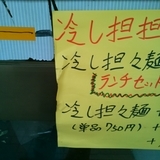 冷し担担
冷し担々麺
ランチセット
冷し担々麺
(単品 750円)+
+